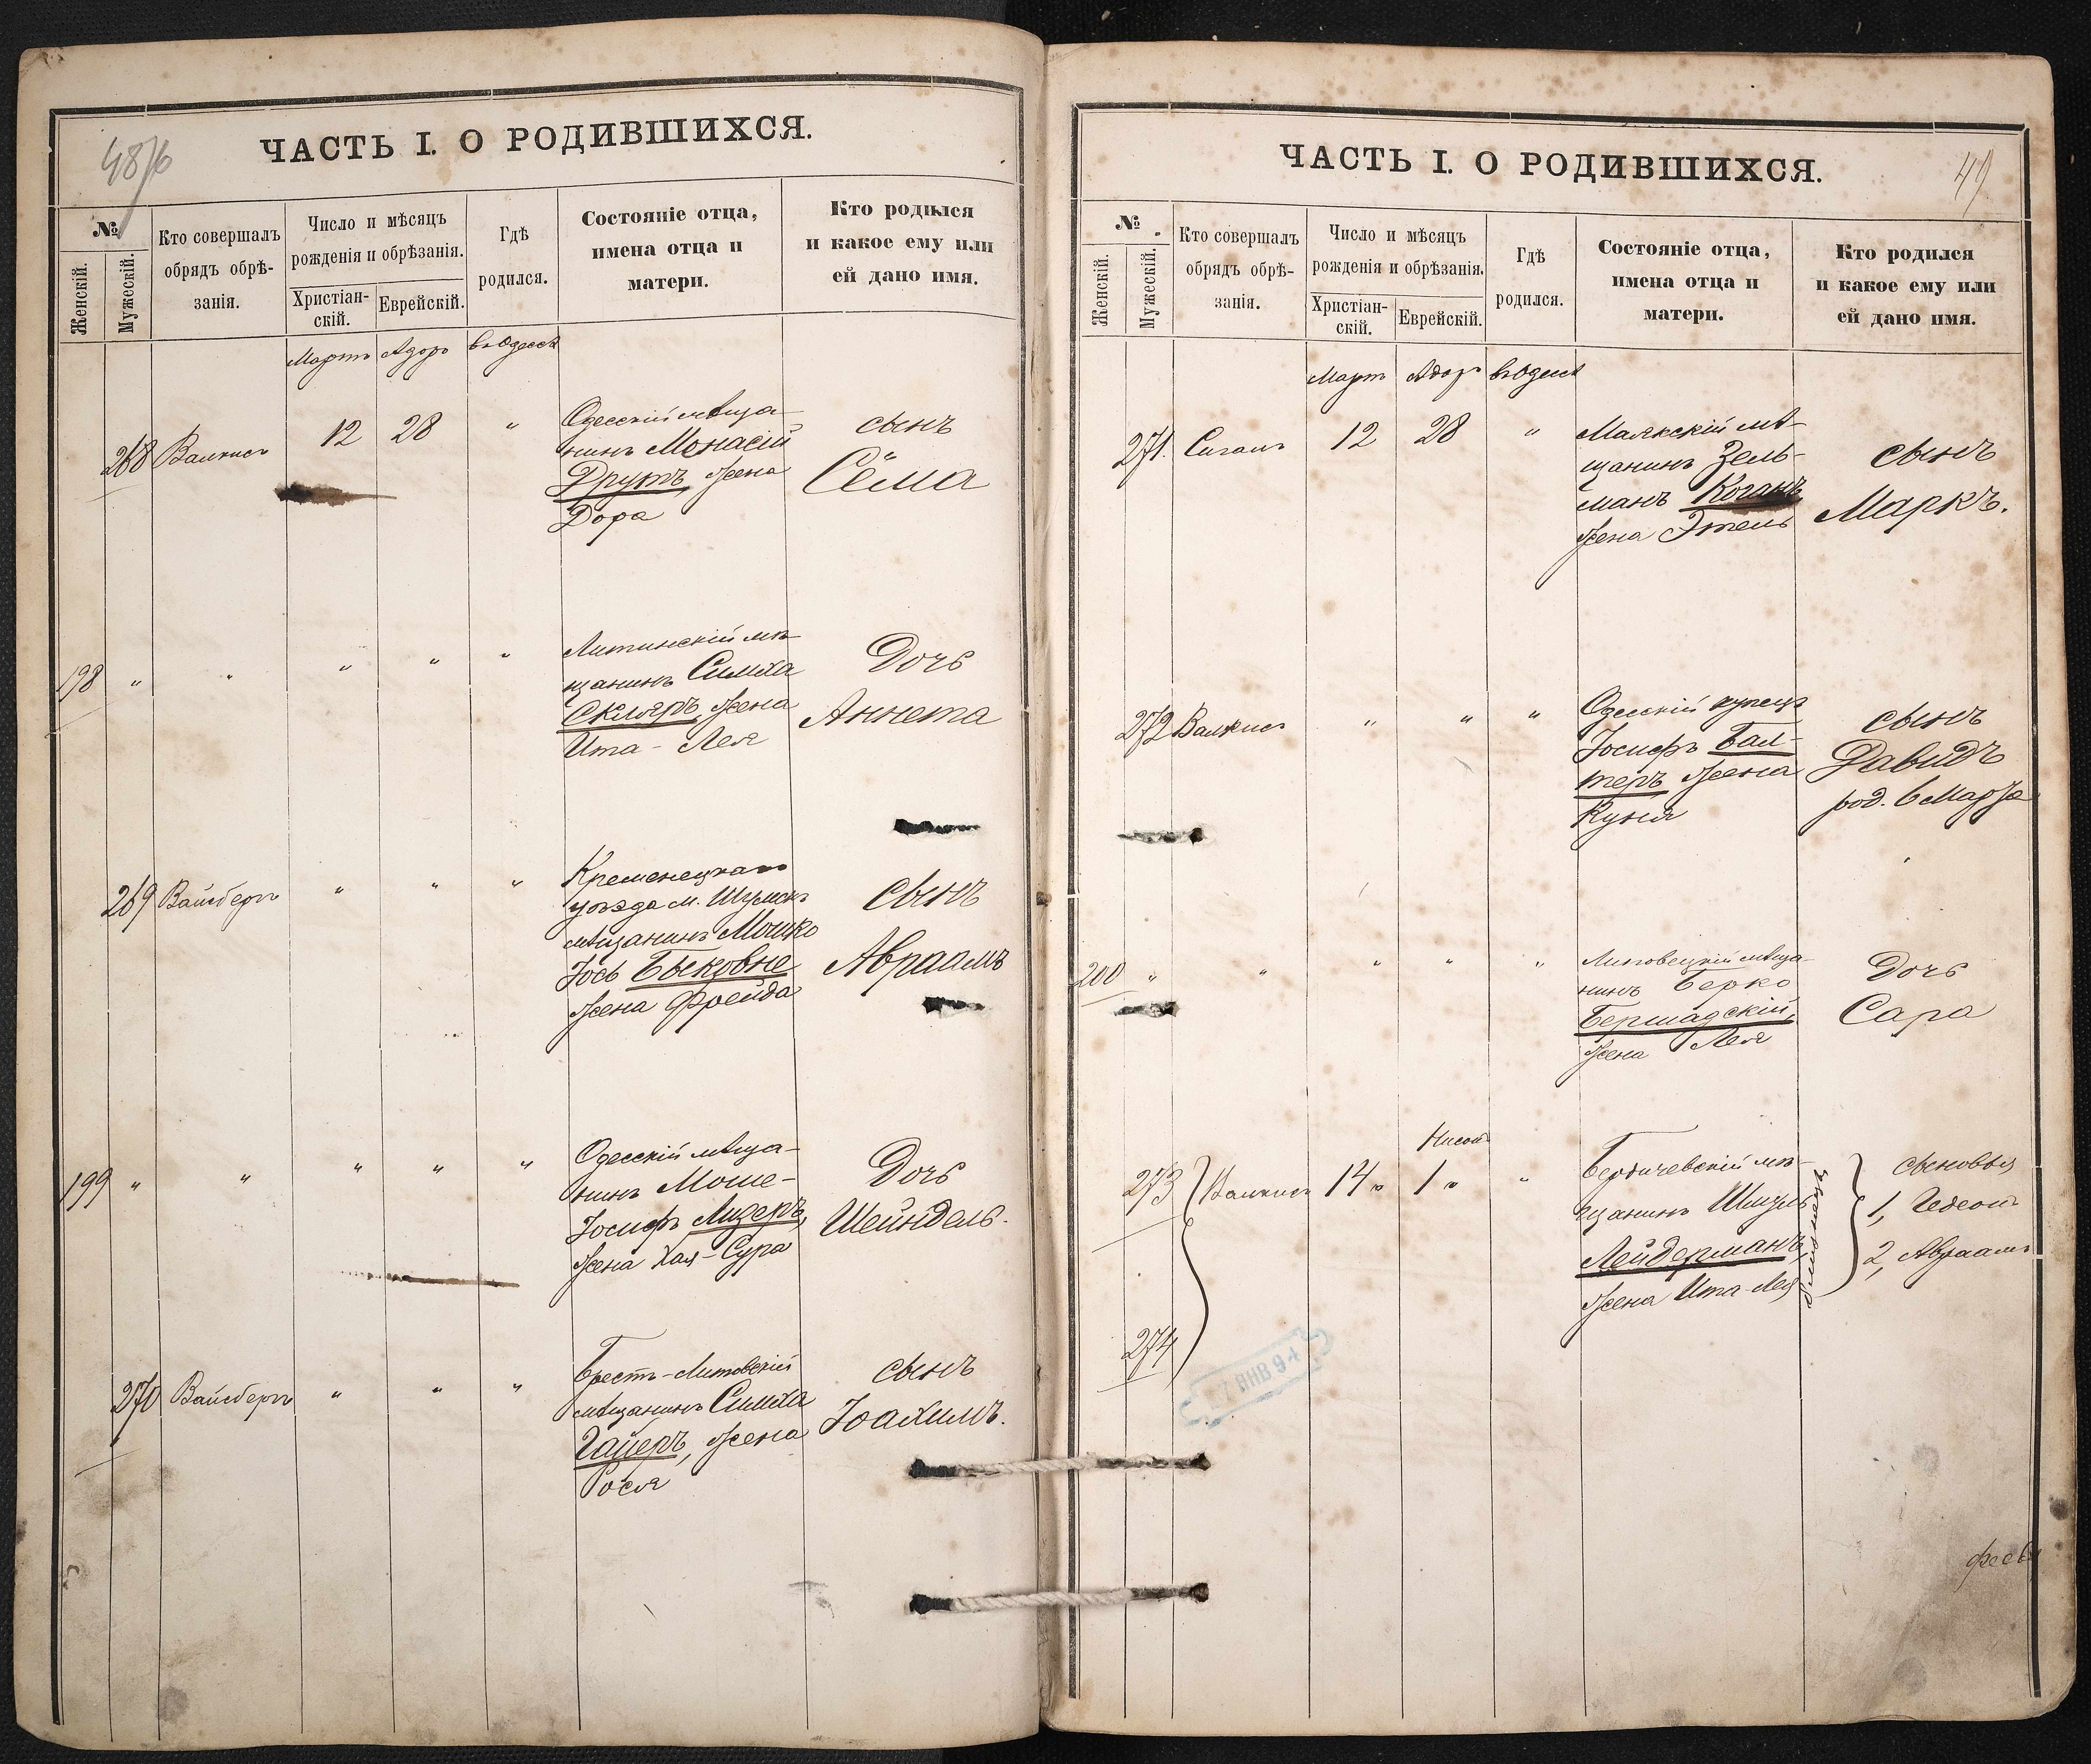 48/6
ЧАСТЬ I. О РОДИВШИХСЯ.
№
Женскій.
Мужескій.
Кто совершалъ
обрядъ обрѣ-
занія.
Число и мѣсяцъ
рожденія и обрѣзанія.
Христіан-
скій.
Еврейскій.
Гдѣ
родился.
Состояніе отца,
имена отца и
матери.
Кто родился
и какое ему или
ей дано имя.
Мартъ Адоръ въ Одессѣ
268 Валкисъ 12 28 "
Одесскій мѣща-
нинъ Монасій
Друтъ, жена
Дора
сынъ
Сёма
198 " " " " "
Литинскій мѣ-
щанинъ Симха
Скляръ, жена
Ита - Лея
Дочь
Аннета
269 Вайсбергъ " " "
Кременецкаго
уѣзда м. Шумскъ
мѣщанинъ Мошко
Іось Быковне
жена Фрейда
сынъ
Авраамъ
199 " " " " "
Одесскій мѣща-
нинъ Моше-
Іосифъ Лидеръ,
жена Хая-Сура
Дочь
Шейндель.
270 Вайсбергъ " " "
Брестъ-Литовскій
мѣщанинъ Симха
Гайеръ, жена
Рося
сынъ
Іоахимъ.
49
ЧАСТЬ I. О РОДИВШИХСЯ.
№
Женскій.
Мужескій.
Кто совершалъ
обрядъ обрѣ-
занія.
Число и мѣсяцъ
рожденія и обрѣзанія.
Христіан-
скій.
Еврейскій.
Гдѣ
родился.
Состояніе отца,
имена отца и
матери.
Кто родился
и какое ему или
ей дано имя.
Мартъ Адоръ въ Одессѣ
271. Сигалъ 12 28 "
Маякскій мѣ-
щанинъ Зель-
манъ Коганъ,
жена Этель
сынъ
Маркъ.
272 Валкисъ " " "
Одесскій купецъ
Іосифъ Бал-
теръ, жена
Куня
сынъ
Давидъ
род. 6 Марта
200 " " " " "
Липовецкій мѣща-
нинъ Берко
Бершадскій,
жена Лея
Дочь
Сара
Нисонъ
273 Валкисъ 14 " 1 " "
274
Бердичевскій мѣ-
щанинъ Шмуль
Лейдерманъ,
жена Ита-Лея
сыновья
1, Гедеонъ
2, Авраамъ
7 ЯНВ 94